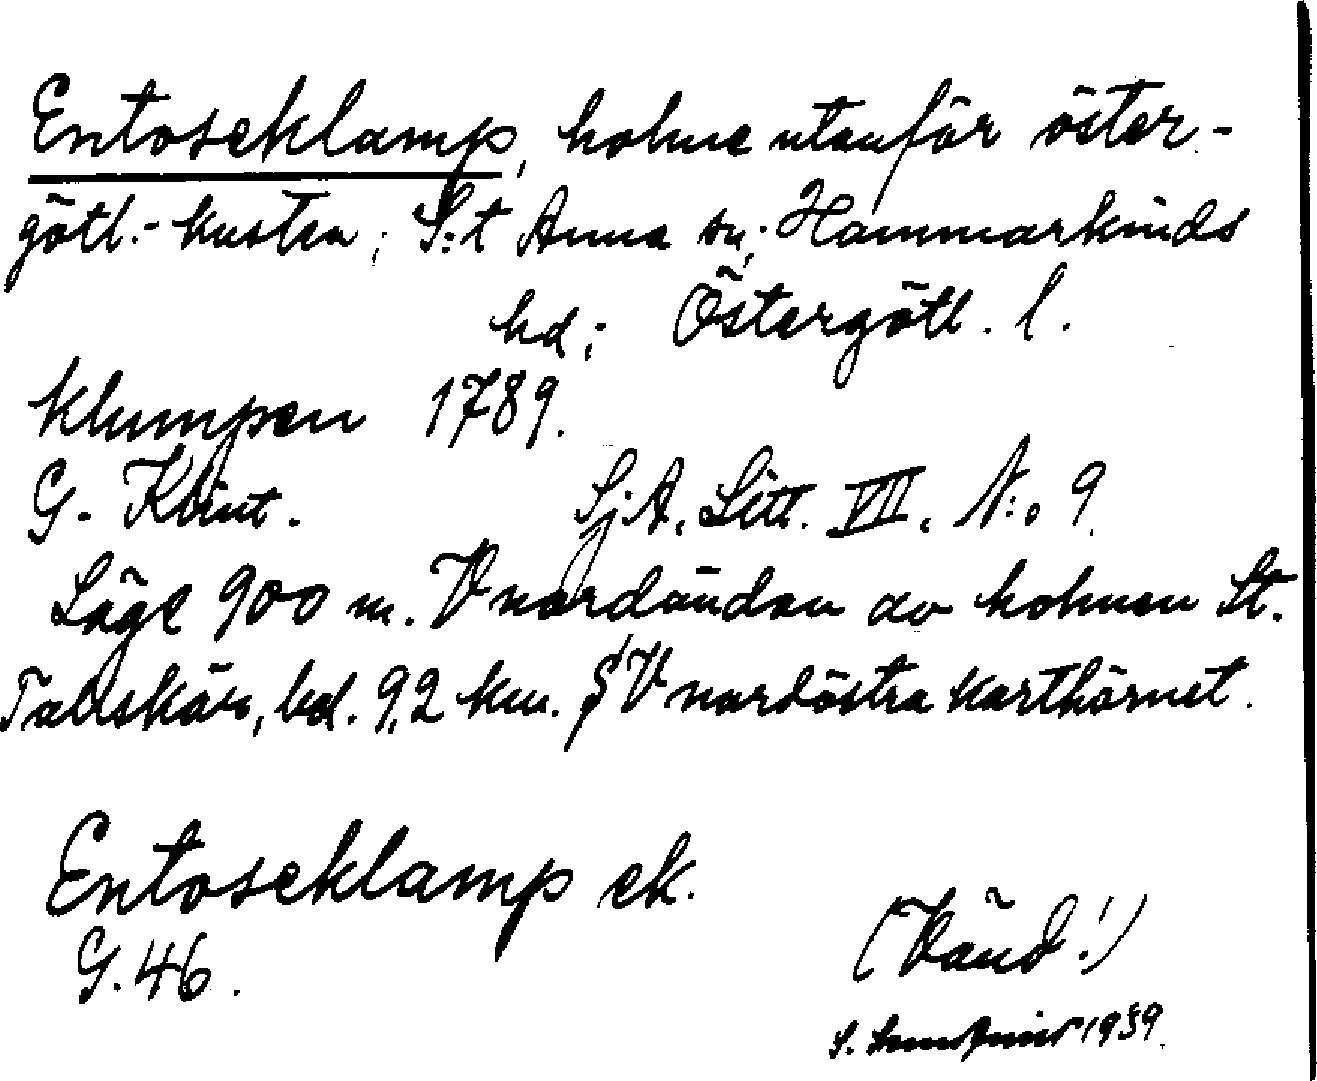 Entoseklamp, holme utanför öster-
götl.- kusten; S:t Anna sn; Hammarkinds
hd; Östergötl. l.
Klumpen 1789.
G. Klint. Sj.A. Litt. VII. N:o 9.
Läge 900 m. V nordändan av holmen St.
Tallskär, bel. 9,2 km. SV nordöstra karthörnet.
Entoseklamp ek.
G. 46.
(Vänd!)
S. 1939.